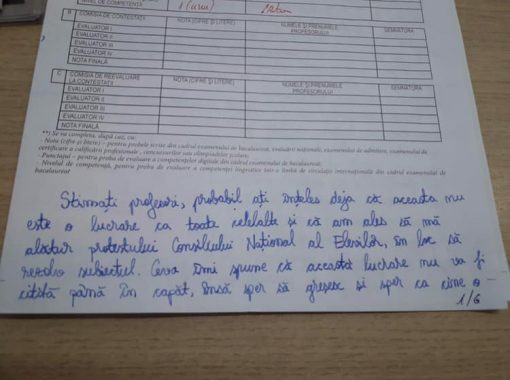 NIVEL DE COMPETENȚĂ
1 (unu)
B COMISIA DE CONTESTAȚII NOTA (CIFRE ȘI LITERE) NUMELE ȘI PRENUMELE PROFESORULUI SEMNĂTURA
EVALUATOR I
EVALUATOR II
EVALUATOR III
EVALUATOR IV
NOTA FINALĂ
C COMISIA DE REEVALUARE LA CONTESTAȚII NOTA (CIFRE ȘI LITERE) NUMELE ȘI PRENUMELE PROFESORULUI SEMNĂTURA
EVALUATOR I
EVALUATOR II
EVALUATOR III
EVALUATOR IV
NOTA FINALĂ
**) Se va completa, după caz, cu:
- Nota (cifre și litere) – pentru probele scrise din cadrul examenului de bacalaureat, evaluării naționale, examenului de admitere, examenului de
certificare a calificării profesionale, concursurilor sau olimpiadelor școlare;
- Punctajul – pentru proba de evaluare a competențelor digitale din cadrul examenului de bacalaureat;
- Nivelul de competență, pentru proba de evaluare a competenței lingvistice într-o limbă de circulație internațională din cadrul examenului de
bacalaureat
Stimați profesori, probabil ați înțeles deja că aceasta nu
este o lucrare ca toate celelalte și că am ales să mă
alătur protestului Consiliului Național al Elevilor, în loc să
rezolv subiectul. Ceva îmi spune că această lucrare nu va fi
citită până în capăt, însă sper să greșesc și sper ca cine o
1/6